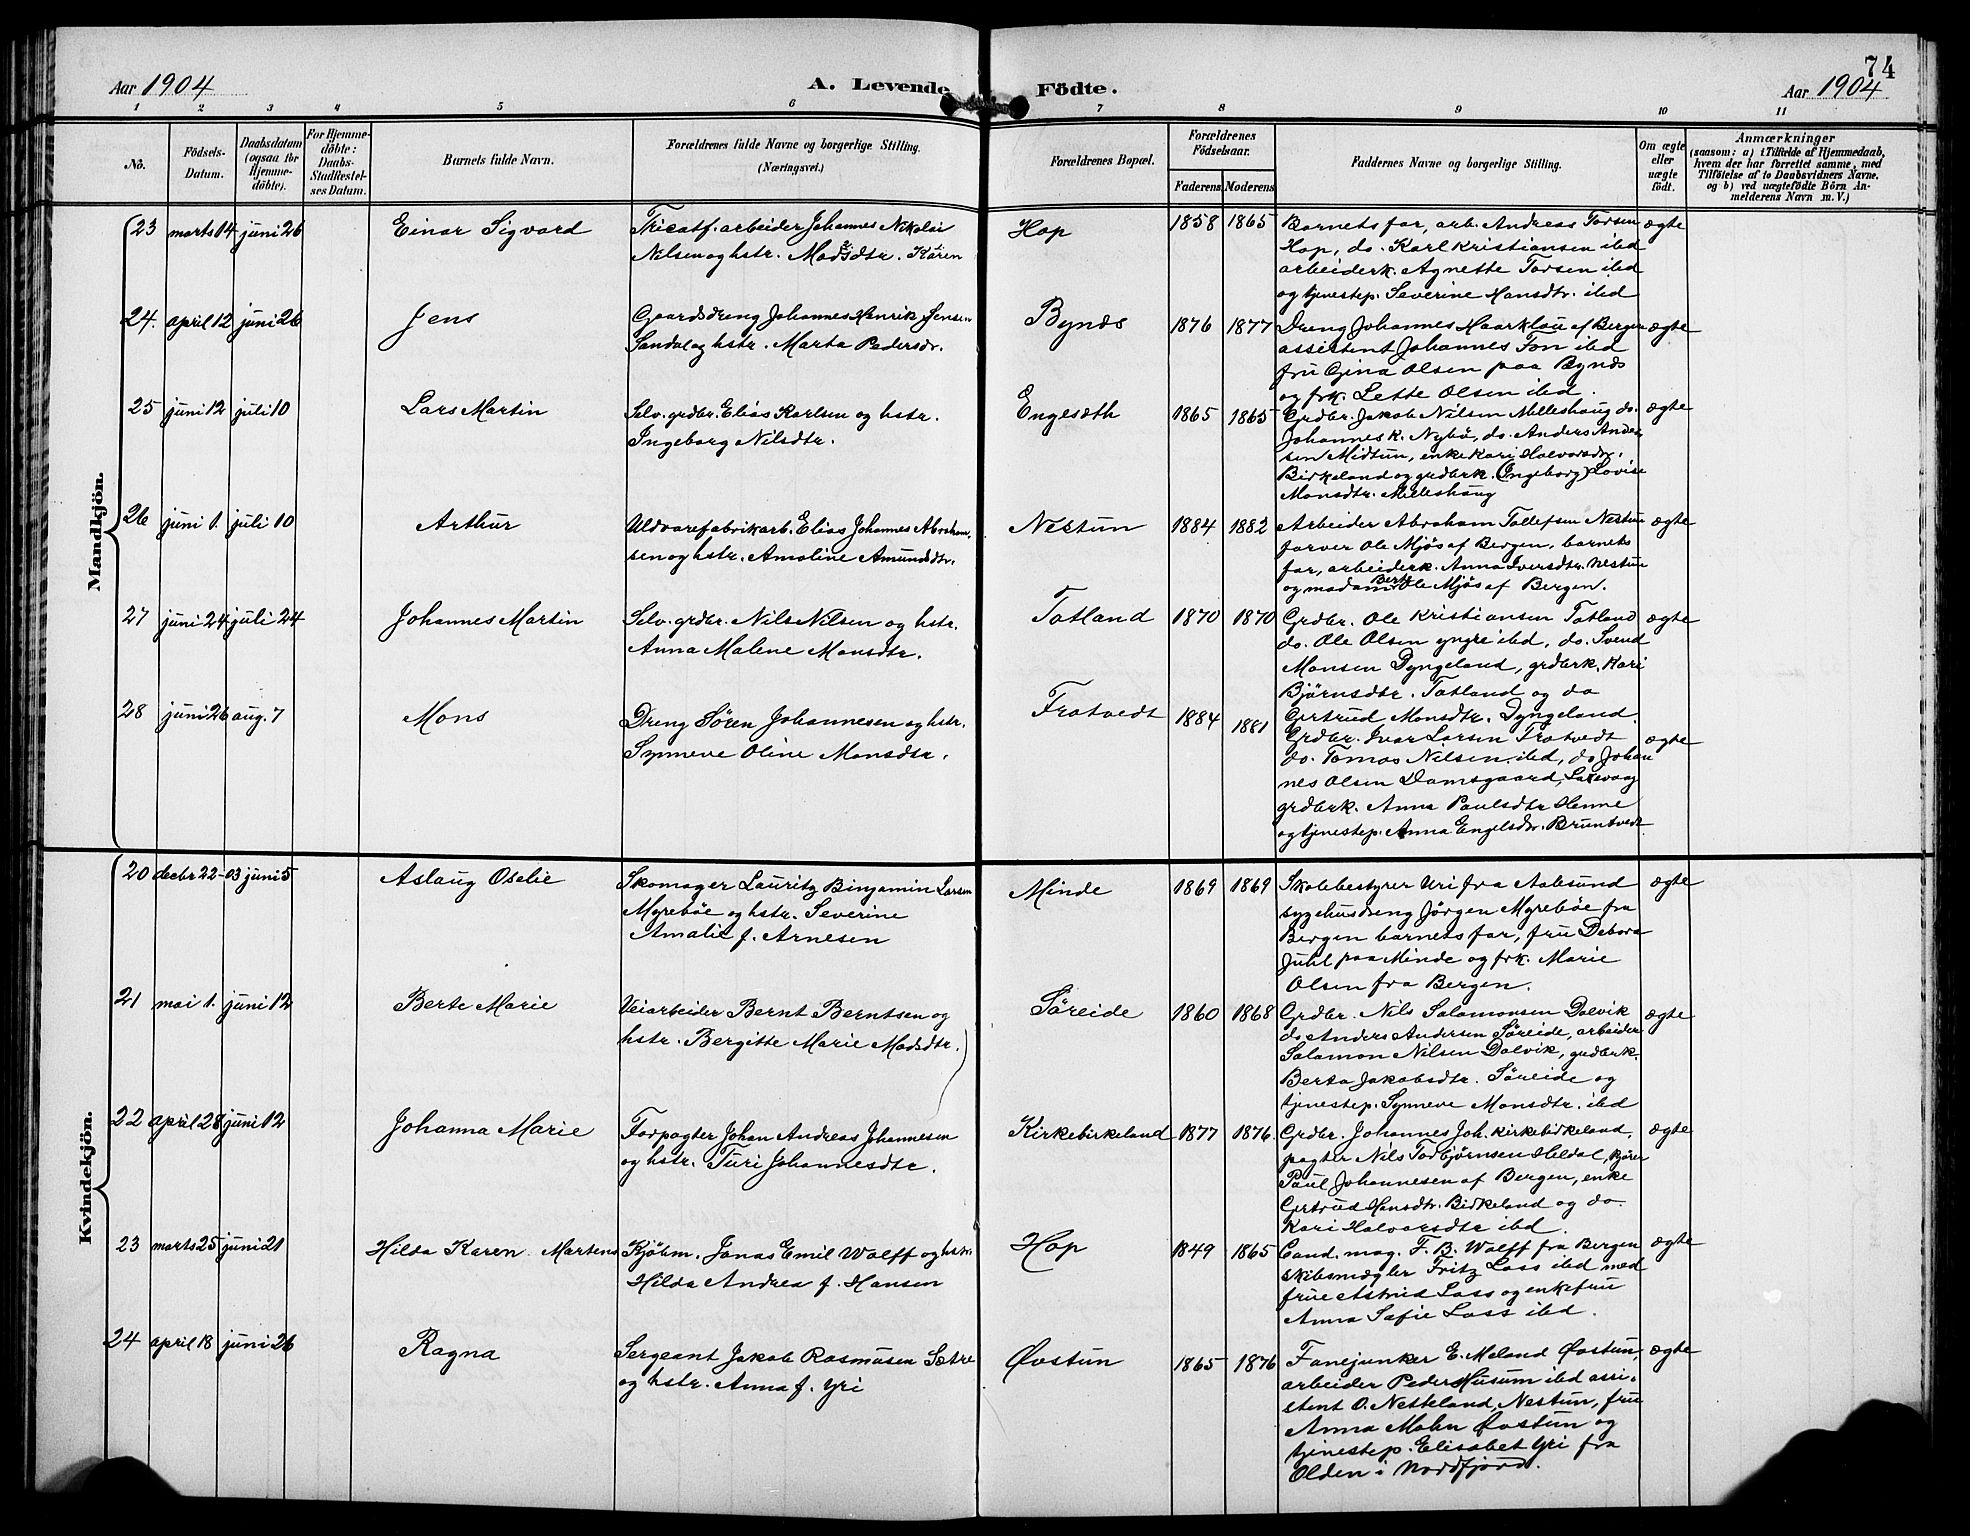 74
Aar 1904
A. Levende Födte.
Aar 1904
1 2 3 4 5 6 7 8 9 10 11
No.
Födsels-
Datum.
Daabsdatum
(ogsaa for
Hjemme-
döbte).
For Hjemme-
döbte:
Daabs-
Stadfæstel-
ses Datum.
Barnets fulde Navn.
Forældrenes fulde Navne og borgerlige Stilling.
(Næringsvei.)
Forældrenes Bopæl.
Forældrenes
Födselsaar.
Faderens Moderens
Faddernes Navne og borgerlige Stilling.
Om ægte
eller
uægte
födt.
Anmærkninger
(saasom: a) i Tilfælde af Hjemmedaab,
hvem der har forrettet samme, med
Tilföielse af to Daabsvidners Navne,
og b) ved uægtefödte Börn An-
melderens Navn m. V.)
Mandkjön.
23 marts 14 juni 26 Einar Sigvard
Tricotf. arbeider Johannes Nikolai
Nilsen og hstr. Madsdtr. Karen
Hop 1858 1865
Barnets far, arb. Andreas Torsen
Hop, do. Karl Kristiansen ibd
arbeiderk. Agnette Torsen ibd
og tjenestep. Severine Hansdtr. ibd
ægte
24. april 12 juni 26 Jens
Gaardsdreng Johannes Henrik Jensen
Sandal og hstr. Marta Pedersdr.
Bynds 1876 1877
Dreng Johannes Haarklau af Bergen
assistent Johannes Fon ibd
fru Gina Olsen paa Bynds
og frk. Lette Olsen ibd.
ægte
25 juni 12 juli 10 Lars Martin
Selv. grdbr. Elias Karlsen og hstr.
Ingeborg Nilsdtr.
Engesæth 1865 1865
Grdbr. Jakob Nilsen Milleshaug do.
Johannes K. Nybö, do. Anders Ander-
sen Midtun, enke Kari Halvorsdtr.
Birkeland og grdbrk. (Ingeborg) Lovise
Monsdtr. Milleshaug
ægte
26 juni 1. juli 10 Arthur
Uldvarefabrikarb. Elias Johannes Abraham-
sen og hstr. Amaline Amundsdtr.
Nestun 1884 1882
Arbeider Abraham Tollefsen Nestun
farver Ole Mjös af Bergen, barnets
far, arbeiderk. Anna Iversdtr. Nestun
og madam Berte Ole Mjös af Bergen.
ægte
27 juni 24 juli 24 Johannes Martin
Selv. grdbr. Nils Nilsen og hstr.
Anna Malene Monsdtr.
Totland 1870 1870
Grdbr. Ole Kristiansen Totland
do. Ole Olsen yngre ibd, do. Svend
Monsen Dyngeland, grdbrk. Kari
Björnsdtr. Totland og do
Gertrud Monsdtr. Dyngeland.
ægte
28 juni 26 aug. 7 Mons
Dreng Sören Johannesen og hstr.
Synneve Oline Monsdtr.
Trotvedt 1884 1881
Grdbr. Ivar Larsen Trotvedt
do. Tomas Nilsen ibd, do Johan
nes Olsen Damsgaard, Laxevaag
grdbrk. Anna Paulsdtr Henne
og tjenestep. Anna Engelsdtr. Bruntvedt
ægte
Kvindekjön.
20 decbr 22-03 juni 5 Aslaug Oselie
Skomager Lauritz Binjamin Larsen
Myreböe og hstr. Severine
Amalie f. Arnesen
Minde 1869 1869
Skolebestyrer Uri fra Aalesund
sygehusdreng Jörgen Myreböe fra
Bergen barnets far, fru Debora
Juhl paa Minde og frk. Marie
Olsen fra Bergen.
ægte
21 mai 1. juni 12 Berte Marie
Veiarbeider Bernt Berntsen og
hstr. Bergitte Marie Madsdtr.
Söreide 1860 1868
Grdbr. Nils Salamonsen Dolvik
do Anders Andersen Söreide, arbeider
Salamon Nilsen Dolvik, grdbrk.
Berta Jakobsdtr. Söreide og
tjenestep. Synneve Monsdtr. ibd
ægte
22 april 28 juni 12 Johanna Marie
Forpagter Johan Andreas Johannesen
og hstr. Turi Johannesdtr.
Kirkebirkeland 1877 1876.
Grdbr. Johannes Joh. Kirkebirkeland,
pagter Nils Torbjørnsen Hildal, kjörer
Paul Johannesen af Bergen, enke
Gertrud Hansdtr. Birkeland og do
Kari Halvorsdtr ibd.
ægte
23 marts 25 juni 21 Hilda Karen Martens
Kjöbm. Jonas Emil Wolff og hstr.
Hilda Andrea f. Hansen
Hop 1849 1865
Cand. mag. F. B. Wolff fra Bergen
skibsmægler Fritz Loss ibd med
frue Astrid Loss og enkefru
Anna Sofie Loss ibd.
ægte
24 april 18 juni 26 Ragna
Sergeant Jakob Rasmusen Sætre
og hstr. Anna f. Yri
Øvstun 1865 1876
Fanejunker E. Meland Øvstun,
arbeider Peder Husum ibd assi-
stent O. Nesteland, Nestun, fru
Anna Mohn Øvstun og
tjenestep. Elisabet Yri fra
Olden i Nordfjord.
ægte